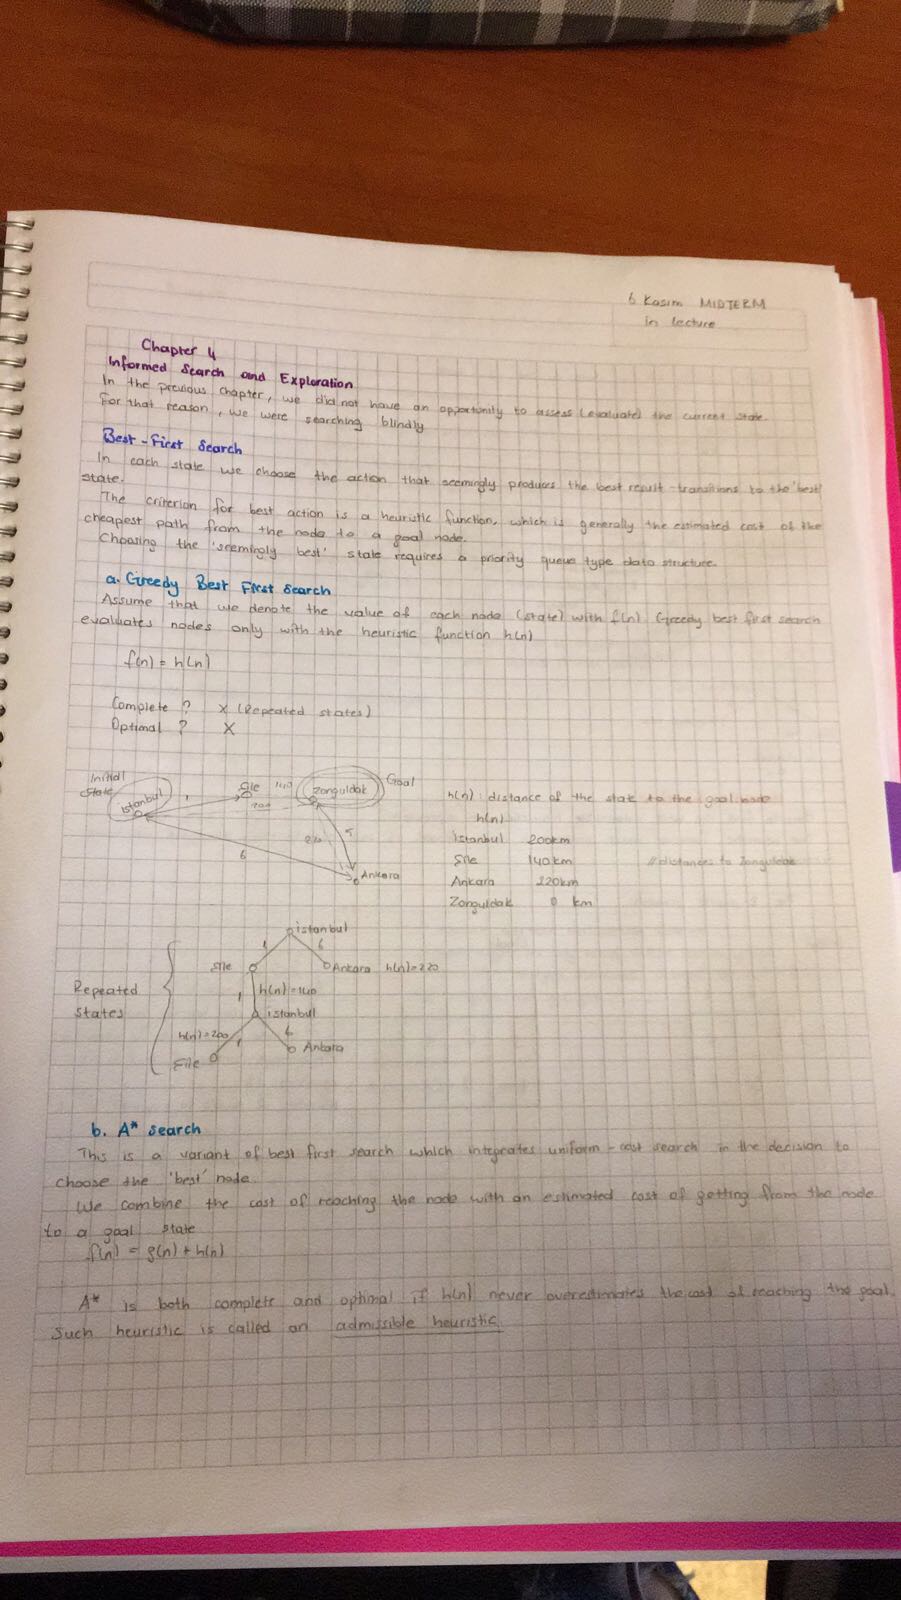 6 Kasım MIDTERM
in lecture
Chapter 4
Informed Search and Exploration
In the previous chapter, we did not have an opportunity to assess (evaluate) the current state.
For that reason, we were searching blindly
Best-First Search
In each state we choose the action that seemingly produces the best result-transitions to the 'best'
state.
The criterion for best action is a heuristic function, which is generally the estimated cost of the
cheapest path from the node to a goal node.
Choosing the 'seemingly best' state requires a priority queue type data structure.
a. Greedy Best First Search
Assume that we denote the value of each node (state) with f(n). Greedy best first search
evaluates nodes only with the heuristic function h(n)
f(n) = h(n)
Complete ? X (Repeated states)
Optimal ? X
Initial
State
istanbul
1
Şile
140
200
Zonguldak
Goal
5
6
Ankara
h(n) : distance of the state to the goal node
h(n)
istanbul 200km
Şile 140km // distances to Zonguldak
Ankara 220km
Zonguldak 0 km
istanbul
1 6
Şile Ankara h(n)=220
Repeated
states
1 h(n)=140
istanbul
h(n)=200 1 6
Şile Ankara
b. A* search
This is a variant of best first search which integrates uniform-cost search in the decision to
choose the 'best' node.
We combine the cost of reaching the node with an estimated cost of getting from the node
to a goal state
f(n) = g(n) + h(n)
A* is both complete and optimal if h(n) never overestimates the cost of reaching the goal.
Such heuristic is called an admissible heuristic.